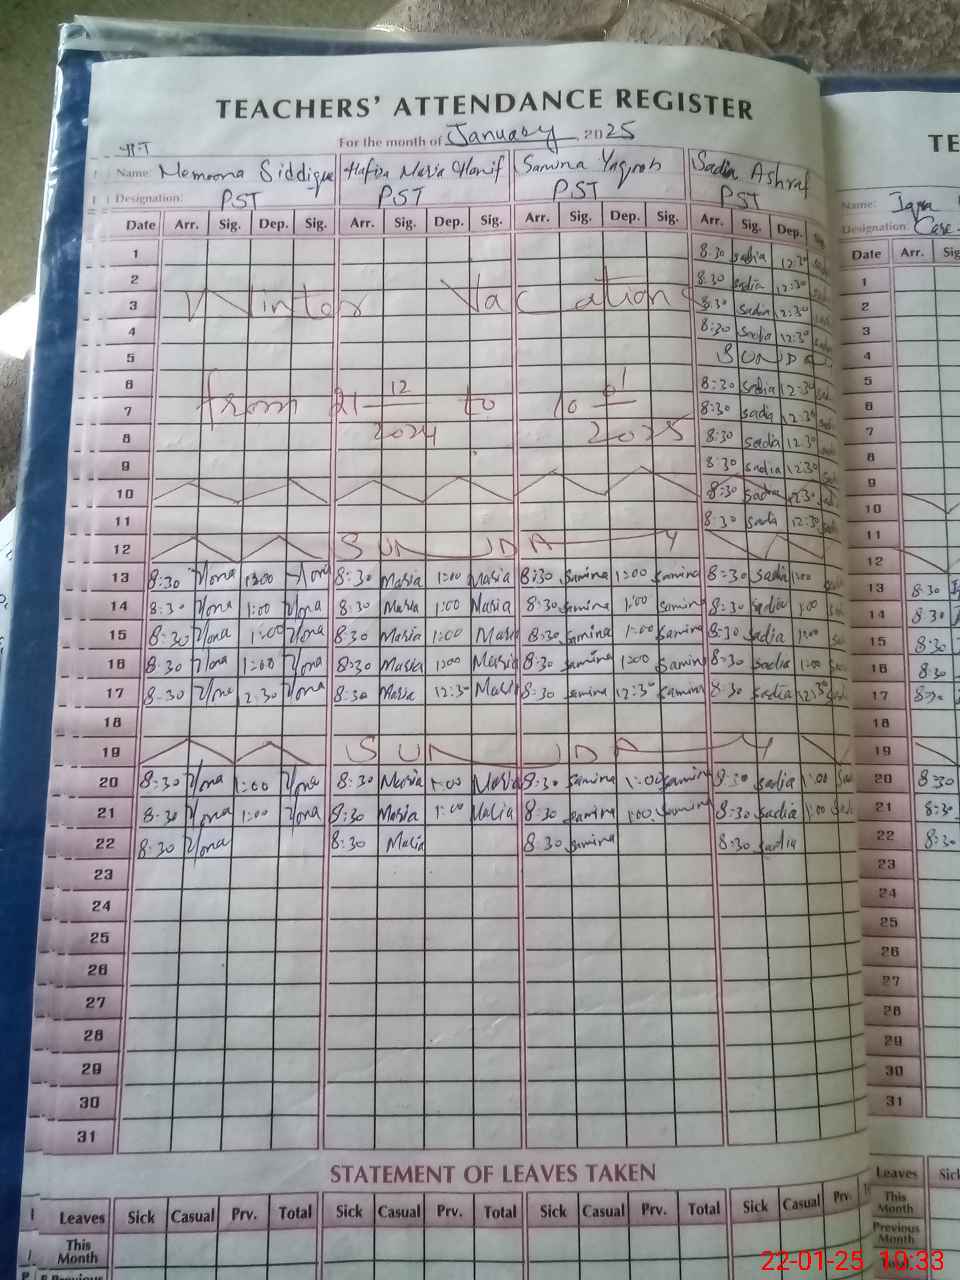 TEACHERS' ATTENDANCE REGISTER
For the month of January 2025
Name: Memoona Siddique Hafiza Maria Hanif Samina Yaqoob Sadia Ashraf
Designation: PST PST PST PST
Date Arr. Sig. Dep. Sig. Arr. Sig. Dep. Sig. Arr. Sig. Dep. Sig. Arr. Sig. Dep. Sig.
1 8:30 sadia 12:30
2 8:30 sadia 12:30
3 Winter Vacations 8:30 sadia 12:30
4 8:30 sadia 12:30
5 SUNDAY
6 8:30 sadia 12:30
7 from 21 12 2024 to 10 01 2025 8:30 sadia 12:30
8 8:30 sadia 12:30
9 8:30 sadia 12:30
10 8:30 sadia 12:30
11 8:30 sadia 12:30
12 SUNDAY
13 8:30 1:00 8:30 Maria 1:00 Maria 8:30 samina 1:00 samina 8:30 sadia 1:00
14 8:30 1:00 8:30 Maria 1:00 Maria 8:30 samina 1:00 samina 8:30 sadia 1:00
15 8:30 1:00 8:30 Maria 1:00 Maria 8:30 samina 1:00 samina 8:30 sadia 1:00
16 8:30 1:00 8:30 Maria 1:00 Maria 8:30 samina 1:00 samina 8:30 sadia 1:00
17 8:30 12:30 8:30 Maria 12:30 Maria 8:30 samina 12:30 samina 8:30 sadia 12:30
18
19 SUNDAY
20 8:30 1:00 8:30 Maria 1:00 Maria 8:30 samina 1:00 samina 8:30 sadia 1:00
21 8:30 1:00 8:30 Maria 1:00 Maria 8:30 samina 1:00 samina 8:30 sadia 1:00
22 8:30 8:30 Maria 8:30 samina 8:30 sadia
23
24
25
26
27
28
29
30
31
STATEMENT OF LEAVES TAKEN
Leaves Sick Casual Prv. Total Sick Casual Prv. Total Sick Casual Prv. Total Sick Casual Prv.
This Month
Previous
TE
Name: Iqra
Designation:
Date Arr. Sig
1
2
3
4
5
6
7
8
9
10
11
12
13 8:30
14 8:30
15 8:30
16 8:30
17 8:30
18
19
20 8:30
21 8:30
22 8:30
23
24
25
26
27
28
29
30
31
Leaves Sick
This Month
Previous Month
22-01-25 10:33